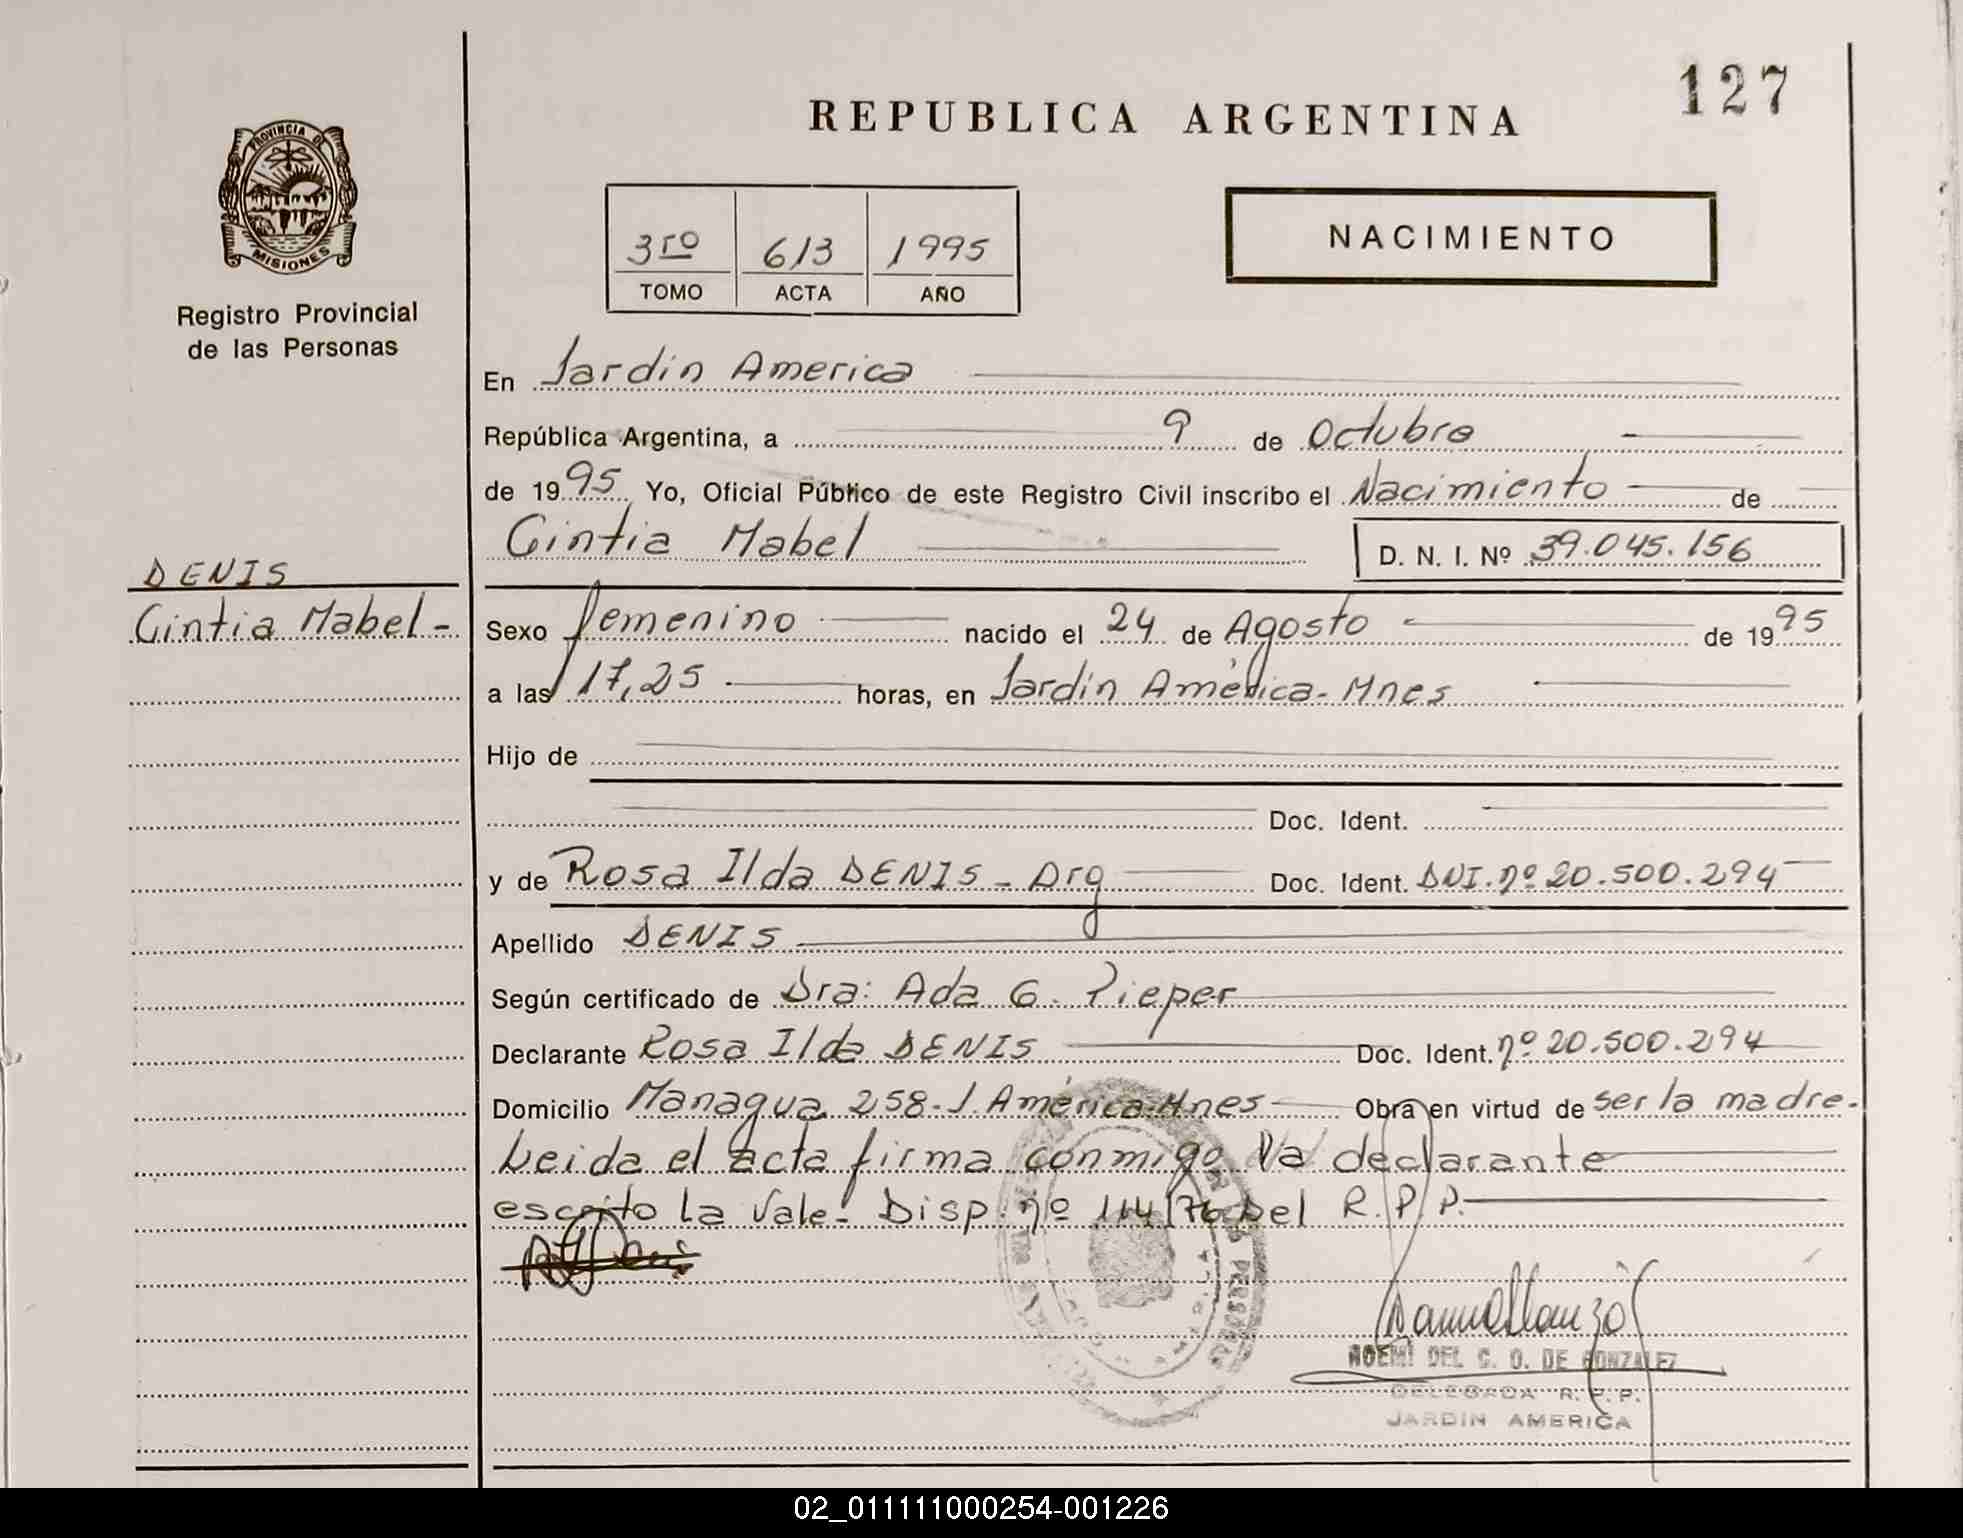 127
REPUBLICA ARGENTINA
PROVINCIA D
MISIONES
Registro Provincial
de las Personas
3ro 613 1995
TOMO ACTA AÑO
NACIMIENTO
En Jardin America
República Argentina, a 9 de Octubre
de 1995 Yo, Oficial Público de este Registro Civil inscribo el Nacimiento de
Cintia Mabel D. N. I. Nº 39.045.156
DENIS
Cintia Mabel -
Sexo femenino nacido el 24 de Agosto de 1995
a las 17,25 horas, en Jardín América - Mnes
Hijo de
Doc. Ident.
y de Rosa Ilda DENIS - Arg Doc. Ident. DNI. nº 20.500.294
Apellido DENIS
Según certificado de Dra: Ada G. Pieper
Declarante Rosa Ilda DENIS Doc. Ident. nº 20.500.294
Domicilio Managua 258 - J. América - Mnes Obra en virtud de ser la madre.
Leida el acta firma conmigo la declarante
escrito la Vale! Disp. nº 114/76 Del R. P. P.
NOEMI DEL C. O. DE GONZALEZ
DELEGADA R. P. P.
JARDIN AMERICA
02_011111000254-001226